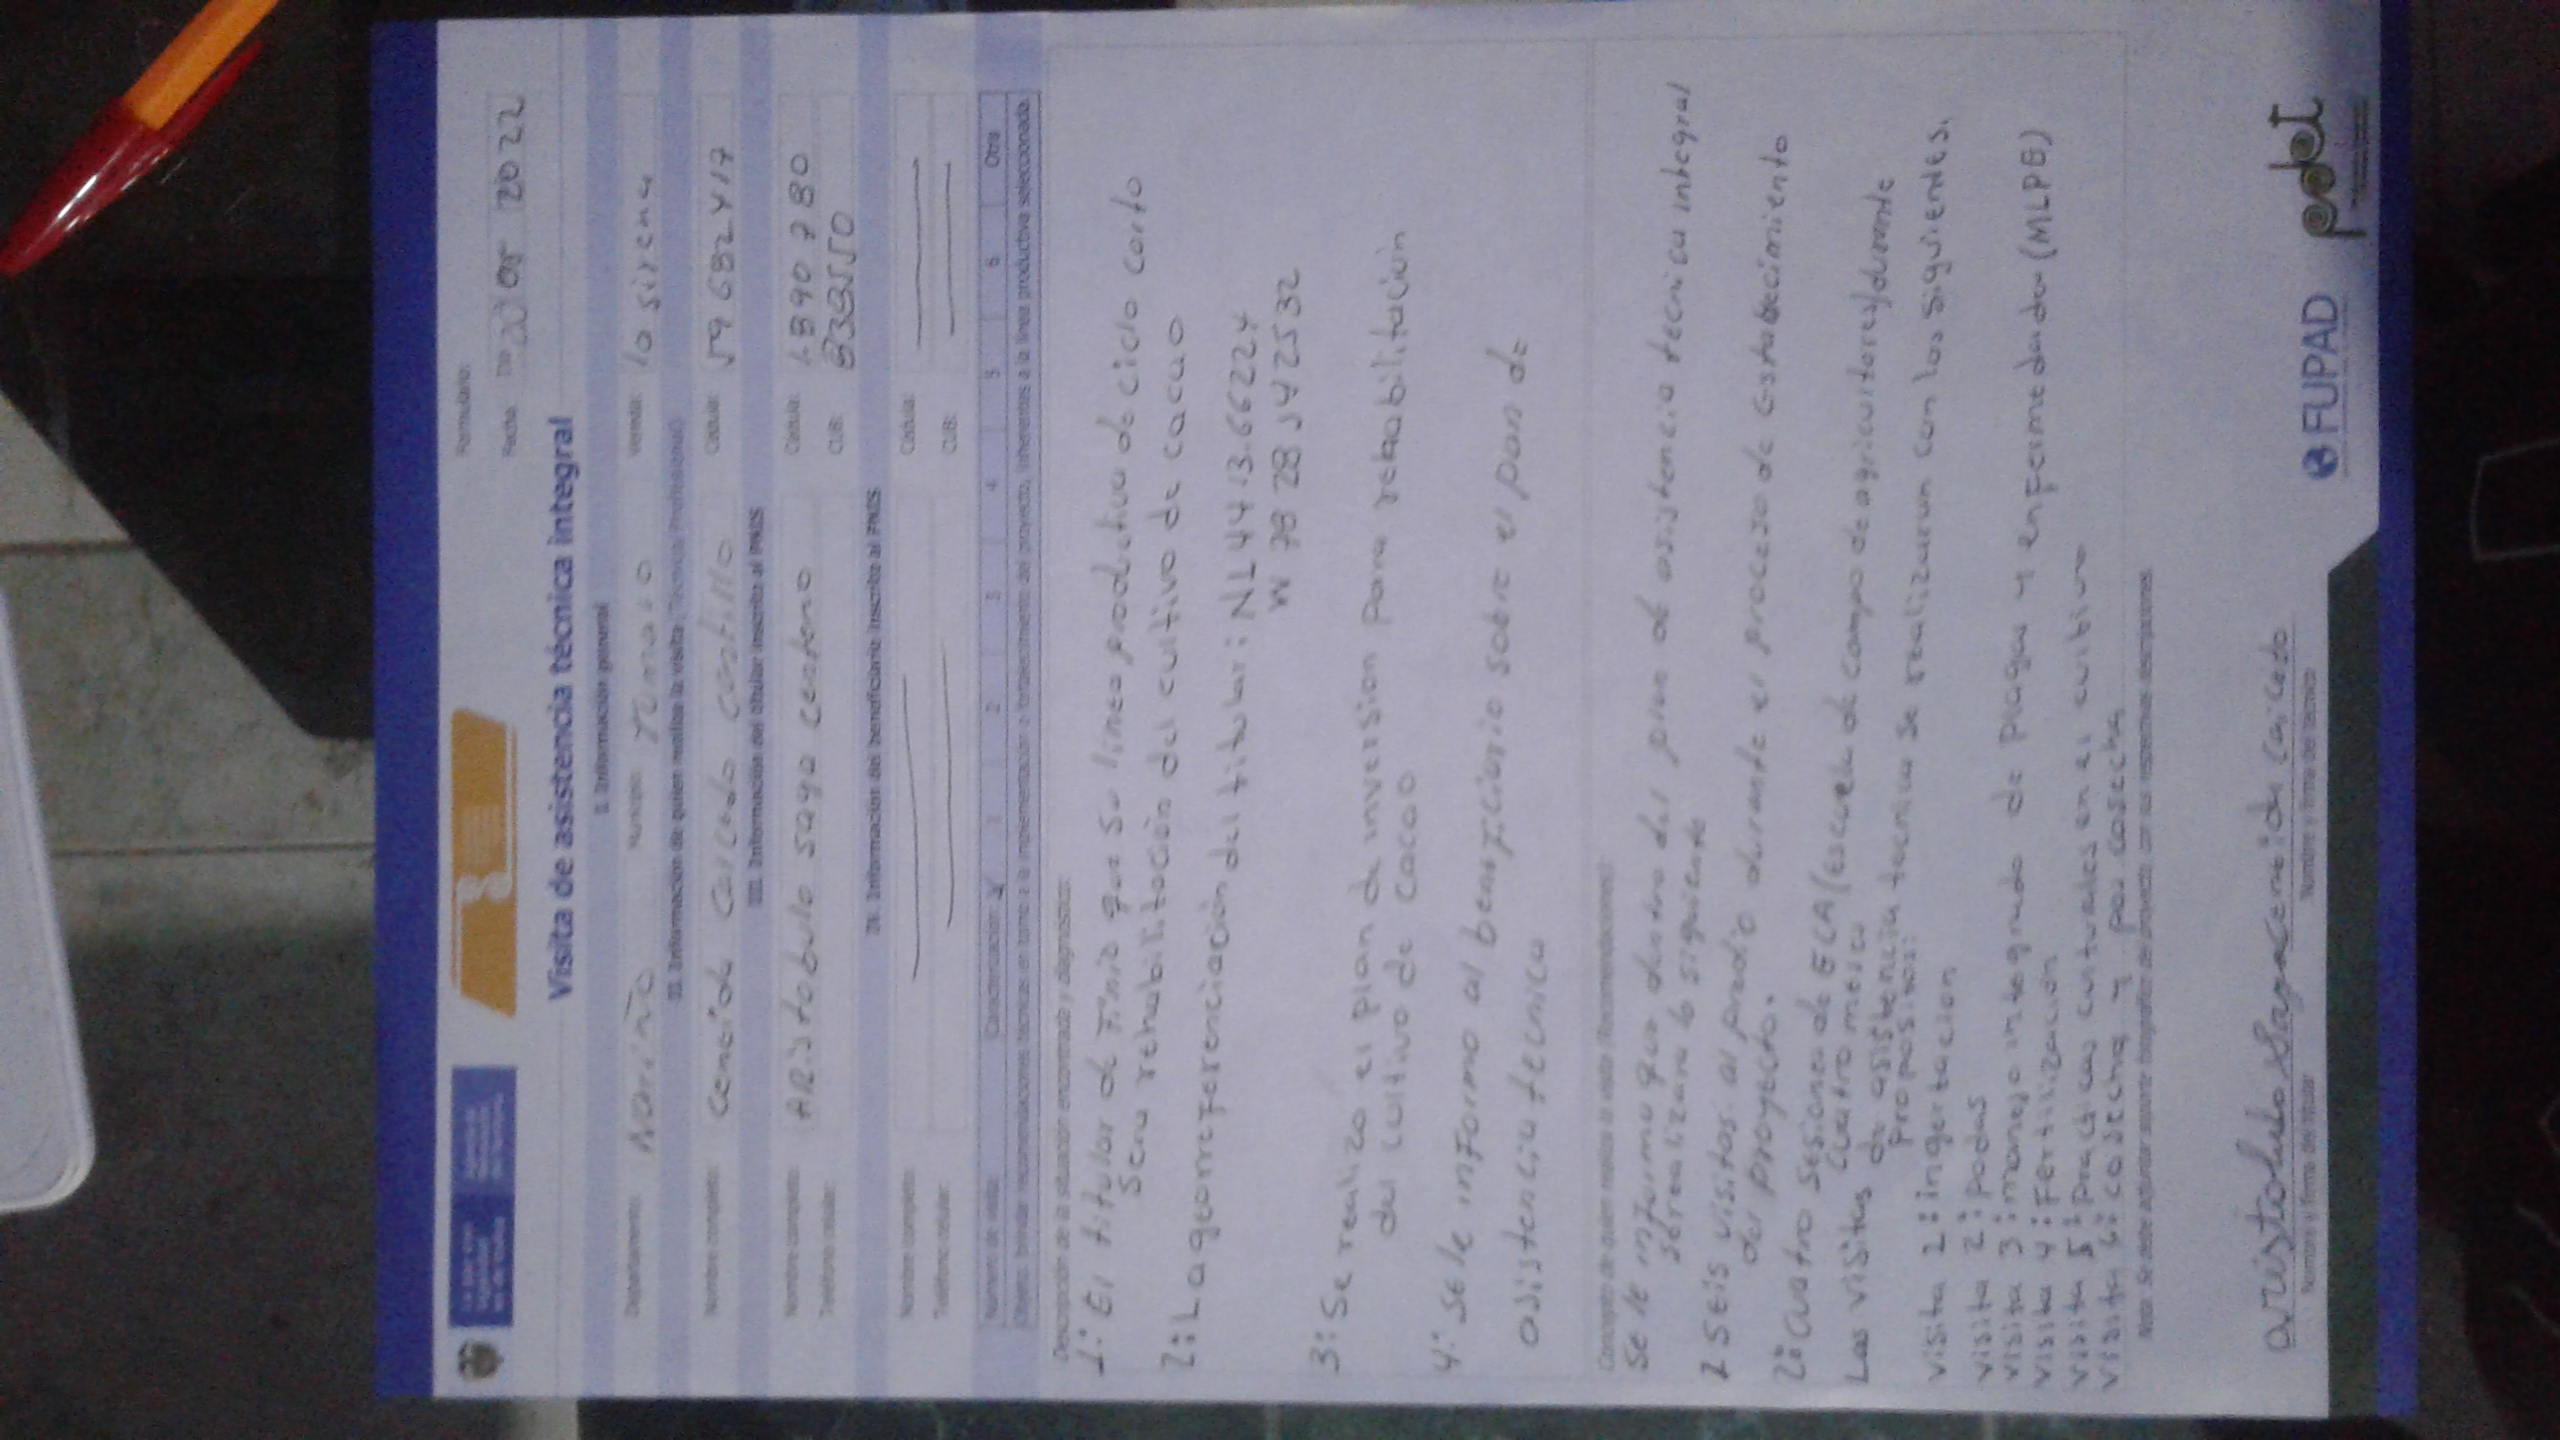 Formulario:
Fecha: 05 2022
Visita de asistencia técnica integral
I. Información general
Departamento: Nariño Municipio: Tumaco Vereda: la sirena
II. Información de quien realiza la visita (Técnico/Profesional)
Nombre completo: Ceneida Caicedo castillo Cédula: 59682417
III. Información del titular inscrito al PNIS
Nombre completo: ARistobulo saya centeno Cédula:
Teléfono celular: CUB:
IV. Información del beneficiario inscrito al PNIS
Nombre completo: Cédula:
Teléfono celular: CUB:
Número de visita: Caracterización: X 1 2 3 4 5 6 Otra
Objeto: brindar recomendaciones técnicas en torno a la implementación o fortalecimiento del proyecto, inherentes a la línea productiva seleccionada.
Descripción de la situación encontrada y diagnóstico:
1: El titular de Finio que su linea productiva de ciclo corto
Sera rehabilitación del cultivo de cacao
2: La georreferenciación del titular: NL 44 13.66224
W 78 28 542532
3: Se realizo el plan de inversion para rehabilitación
del cultivo de cacao
4: se le informo al beneficiario sobre el pan de
asistencia tecnica
Concepto de quien realiza la visita (Recomendaciones):
Se le informa que dentro del plan de asistencia tecnica integral
se realizara lo siguiente
1 Seis visitas al predio durante el proceso de establecimiento
del proyecto.
2: Cuatro sesiones de ECA (escuela de campo de agricultores) durante
Cuatro meses
Las visitas de asistencia tecnica se realizaran con los siguientes.
Propositos:
visita 1: ingertacion
visita 2: podas
visita 3: manejo integrado de plagas y enfermedades (MLPB)
visita 4: Fertilización
visita 5: Practicas culturales en el cultivo
visita 6: cosecha y pos cosecha
Nota: Se debe adjuntar soporte fotográfico del proyecto con sus respectivas descripciones.
aristobulo Saya Ceneida Caicedo
Nombre y firma del titular Nombre y firma del técnico
FUPAD pdet